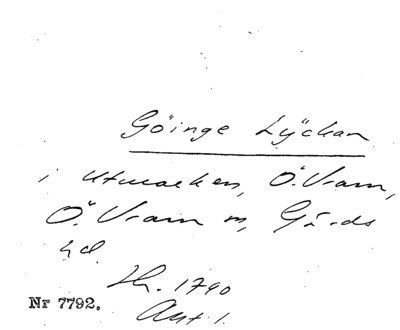 Göinge Lÿckan
i Utmarken, Ö. Vram,
Ö. Vram sn, Gärds
hd
1790
Nr 7792. Akt 1.